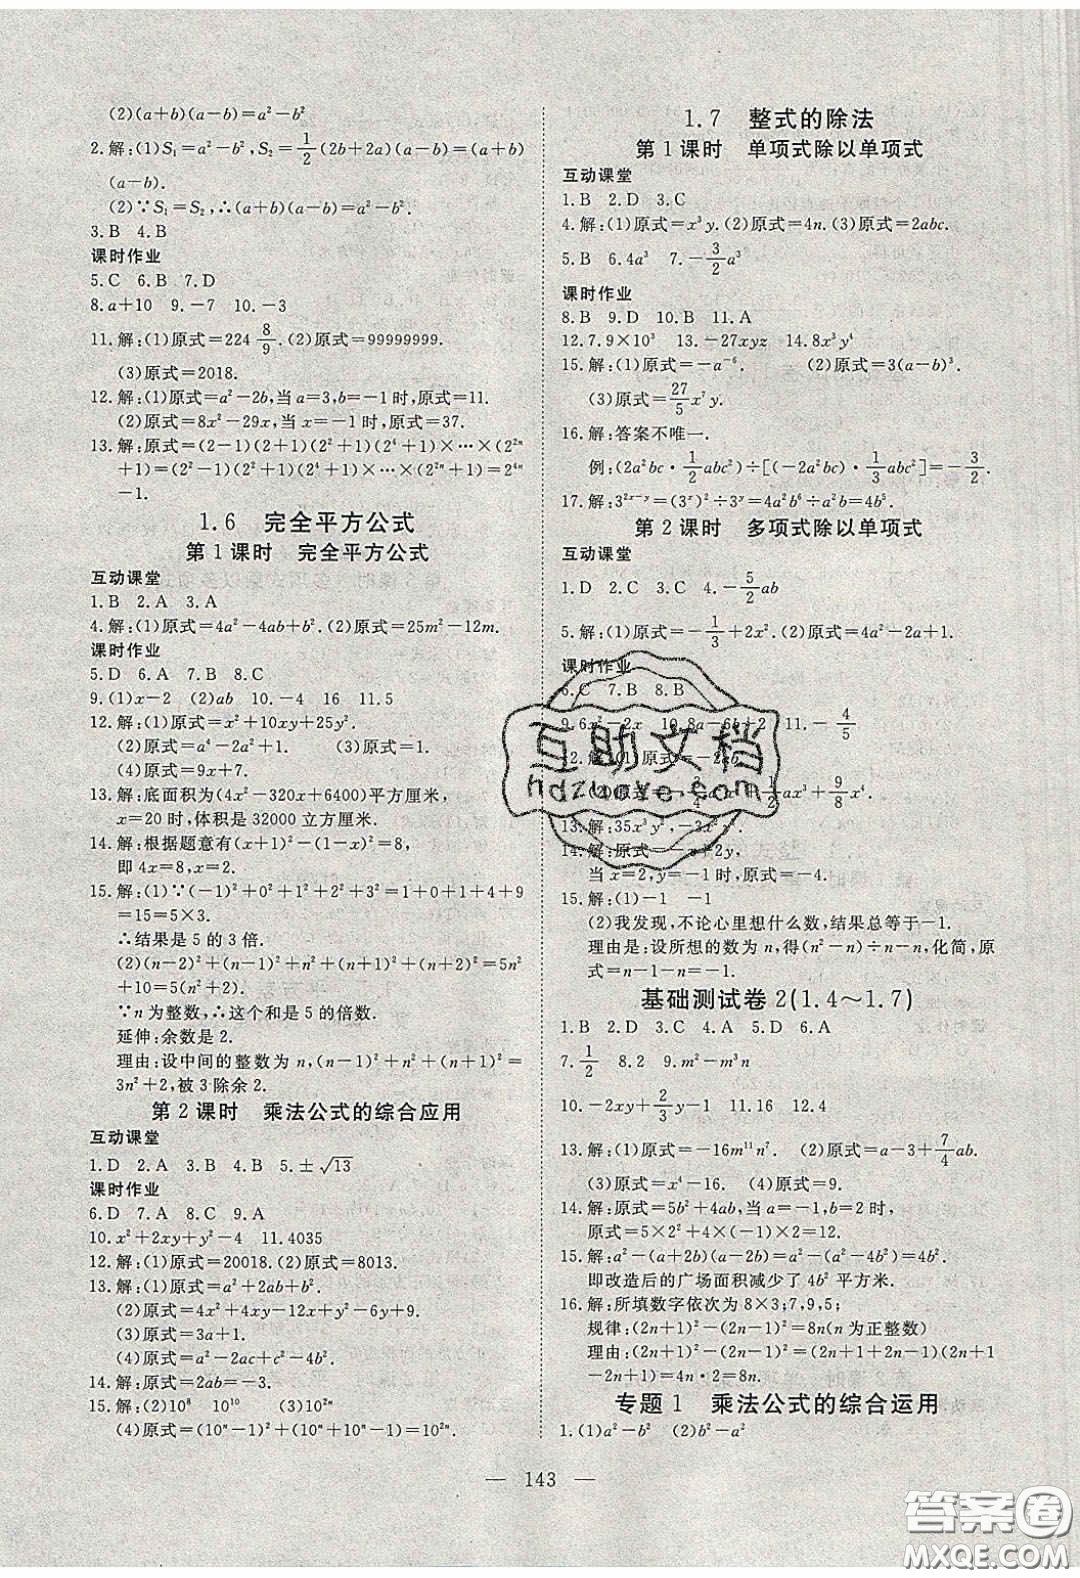 (2)(a+b)(a-b)=a²-b²
2.解:(1)S₁=a²-b², S₂=1/2(2b+2a)(a-b)=(a+b)
(a-b).
(2)∵S₁=S₂,∴(a+b)(a-b)=a²-b².
3.B 4.B
课时作业
5.C 6.B 7.D
8.a+10 9.-7 10.-3
11.解:(1)原式=224 8/9.(2)原式=99999999.
(3)原式=2018.
12.解:(1)原式=a²-2b,当a=3,b=-1时,原式=11.
(2)原式=8x²-29x,当x=-1时,原式=37.
13.解:原式=(2-1)(2+1)(2²+1)(2⁴+1)×…×(2²ⁿ
+1)=(2²-1)(2²+1)(2⁴+1)×…×(2²ⁿ+1)=2⁴ⁿ
-1.
1.6 完全平方公式
第1课时 完全平方公式
互动课堂
1.B 2.A 3.A
4.解:(1)原式=4a²-4ab+b².(2)原式=25m²-12m.
课时作业
5.D 6.A 7.B 8.C
9.(1)x-2 (2)ab 10.-4 16 11.5
12.解:(1)原式=x²+10xy+25y².
(2)原式=a⁴-2a²+1. (3)原式=1.
(4)原式=9x+7.
13.解:底面积为(4x²-320x+6400)平方厘米,
x=20时,体积是32000立方厘米.
14.解:根据题意有(x+1)²-(1-x)²=8,
即4x=8,x=2.
15.解:(1)∵(-1)²+0²+1²+2²+3²=1+0+1+4+9
=15=5×3.
∴结果是5的3倍.
(2)(n-2)²+(n-1)²+n²+(n+1)²+(n+2)²=5n²
+10=5(n²+2).
∵n为整数,∴这个和是5的倍数.
延伸:余数是2.
理由:设中间的整数为n,(n-1)²+n²+(n+1)²=
3n²+2,被3除余2.
第2课时 乘法公式的综合应用
互动课堂
1.D 2.A 3.B 4.B 5.±√13
课时作业
6.D 7.A 8.C 9.A
10.x²+2xy+y²-4 11.4035
12.解:(1)原式=20018.(2)原式=8013.
13.解:(1)原式=a²+2ab+b².
(2)原式=4x²+4xy-12x+y²-6y+9.
(3)原式=3a+1.
(4)原式=a²-2ac+c²-4b².
14.解:原式=2ab=-3.
15.解:(2)10⁸ 10¹⁰ (3)10²ⁿ
(4)原式=(10ⁿ-1)²+(10ⁿ+10ⁿ-1)=10²ⁿ.
1.7 整式的除法
第1课时 单项式除以单项式
互动课堂
1.B 2.D 3.C
4.解:(1)原式=x³y.(2)原式=4n.(3)原式=2abc.
5.B 6.4a³ 7.-3/2a³
课时作业
8.B 9.D 10.B 11.A
12.7.9×10³ 13.-27xyz 14.8x³y⁴
15.解:(1)原式=-a⁻⁶. (2)原式=3(a-b)³.
(3)原式=27/5x⁷y.
16.解:答案不唯一.
例:(2a²bc·1/2abc²)÷[(-2a²bc)·1/3abc²]=-3/2.
17.解:3²ˣ⁻ʸ=(3ˣ)²÷3ʸ=4a²b⁶÷a²b=4b⁵.
第2课时 多项式除以单项式
互动课堂
1.D 2.C 3.C 4.-5/2ab
5.解:(1)原式=-1/3+2x².(2)原式=4a²-2a+1.
课时作业
6.C 7.B 8.B
9.6x²-2x 10.8a-6b+2 11.-4/5
12.解:(1)原式=-2ab.
13.解:35x³y³,-3x²y².
14.解:原式=-x+2y,
当x=2,y=-1时,原式=-4.
15.解:(1)-1 -1
(2)我发现,不论心里想什么数,结果总等于-1.
理由是:设所想的数为n,得(n²-n)÷n-n,化简,原
式=n-1-n=-1.
基础测试卷2(1.4~1.7)
1.B 2.D 3.C 4.A 5.D 6.A
7.1/2 8.2 9.m²-m³n
10.-2xy+2/3y-1 11.60 12.4
13.解:(1)原式=-16m¹¹n⁷. (2)原式=a-3+7/4ab.
(3)原式=x⁴-16. (4)原式=9.
14.解:原式=5b²+4ab,当a=-1,b=-2时,
原式=5×2²+4×(-1)×(-2)=12.
15.解:a²-(a+2b)(a-2b)=a²-(a²-4b²)=4b²,
即改造后的广场面积减少了4b²平方米.
16.解:所填数字依次为8×3;7,9,5;
规律:(2n+1)²-(2n-1)²=8n(n为正整数)
理由:(2n+1)²-(2n-1)²=(2n+1+2n-1)(2n+1
-2n+1)=4n·2=8n.
专题1 乘法公式的综合运用
1.(1)a²-b² (2)b²-a²
— 143 —
互助文档
hdzuoye.com
答案圈
MXQE.COM